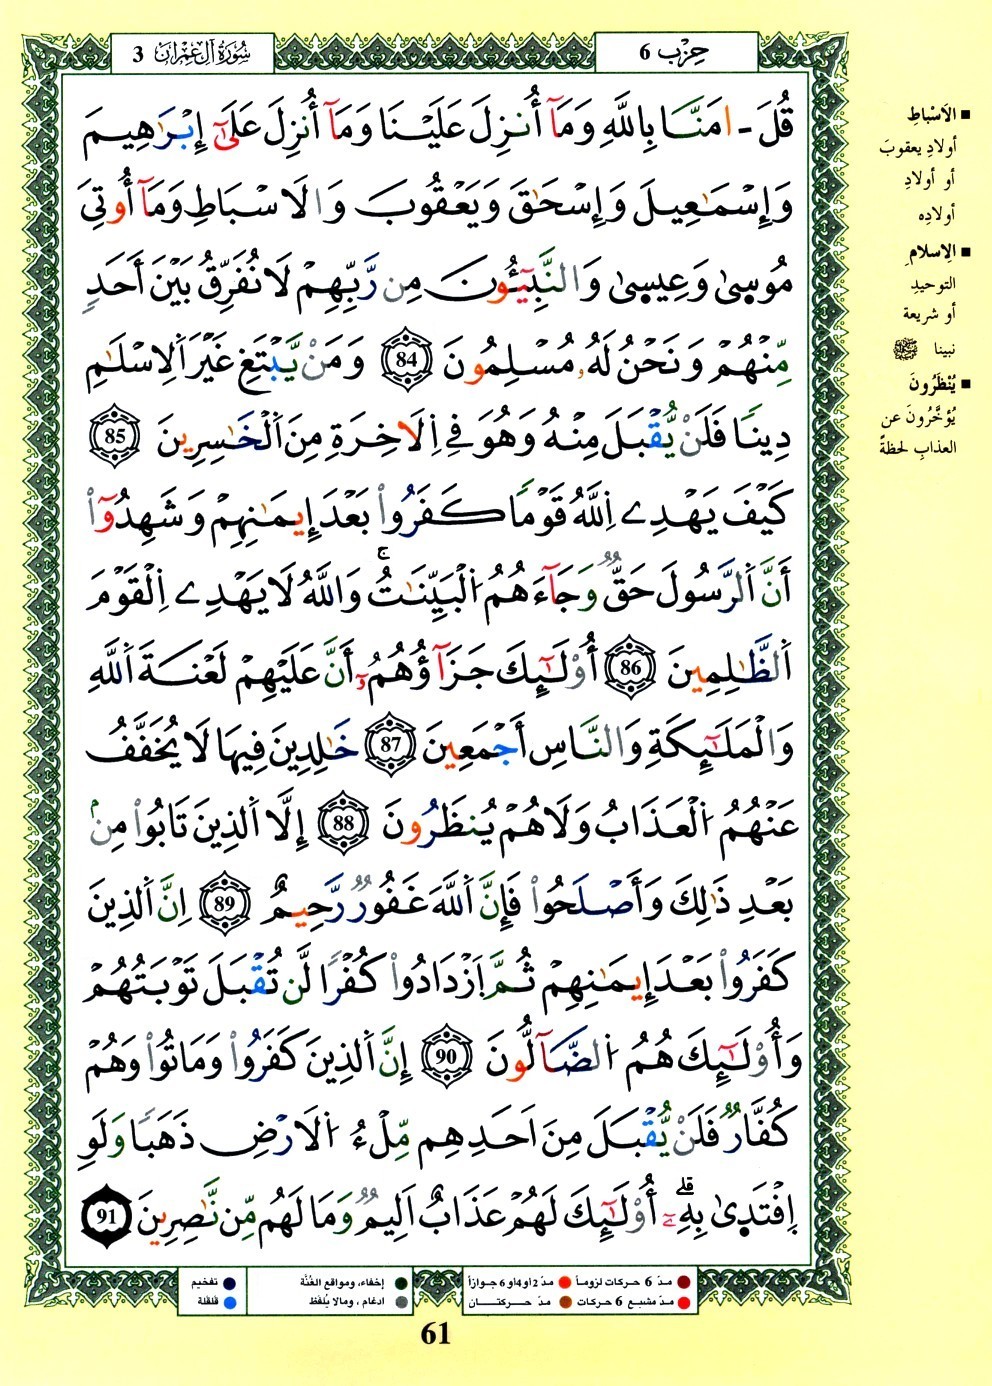 سُورَةُ آلِ عِمْرَانَ 3
حِزْب 6
قُلَ ـ اٰمَنَّا بِاللَّهِ وَمَآ أُنزِلَ عَلَيْنَا وَمَآ أُنزِلَ عَلَىٰٓ إِبْرَٰهِيمَ
وَإِسْمَٰعِيلَ وَإِسْحَٰقَ وَيَعْقُوبَ وَالَاسْبَاطِ وَمَآ أُوتِيَ
مُوسِىٰ وَعِيسِىٰ وَالنَّبِيٓـُٔونَ مِن رَّبِّهِمْ لَا نُفَرِّقُ بَيْنَ أَحَدٍ
مِّنْهُمْ وَنَحْنُ لَهُۥ مُسْلِمُونَ 84 وَمَنْ يَّبْتَغِ غَيْرَ اَلِاسْلَٰمِ
دِينًا فَلَنْ يُّقْبَلَ مِنْهُ وَهُوَ فِي اِلَاخِرَةِ مِنَ اَلْخَٰسِرِينَ 85
كَيْفَ يَهْدِے اِللَّهُ قَوْمًا كَفَرُواْ بَعْدَ إِيمَٰنِهِمْ وَشَهِدُوٓاْ
أَنَّ اَلرَّسُولَ حَقٌّ وَجَآءَهُمُ اُلْبَيِّنَٰتُ ۚ وَاللَّهُ لَا يَهْدِے اِلْقَوْمَ
اَلظَّٰلِمِينَ 86 أُوْلَٰٓئِكَ جَزَآؤُهُمُۥٓ أَنَّ عَلَيْهِمْ لَعْنَةَ اَللَّهِ
وَالْمَلَٰٓئِكَةِ وَالنَّاسِ أَجْمَعِينَ 87 خَٰلِدِينَ فِيهَا لَا يُخَفَّفُ
عَنْهُمُ اُلْعَذَابُ وَلَا هُمْ يُنظَرُونَ 88 إِلَّا اَلذِينَ تَابُواْ مِنۢ
بَعْدِ ذَٰلِكَ وَأَصْلَحُواْ فَإِنَّ اَللَّهَ غَفُورٌ رَّحِيمٌ 89 اِنَّ اَلذِينَ
كَفَرُواْ بَعْدَ إِيمَٰنِهِمْ ثُمَّ اَزْدَادُواْ كُفْرًا لَّن تُقْبَلَ تَوْبَتُهُمْ
وَأُوْلَٰٓئِكَ هُمُ اُلضَّآلُّونَ 90 إِنَّ اَلذِينَ كَفَرُواْ وَمَاتُواْ وَهُمْ
كُفَّارٌ فَلَنْ يُّقْبَلَ مِنَ اَحَدِهِم مِّلْءُ اُلَارْضِ ذَهَبًا وَلَوِ
اِفْتَدِىٰ بِهِۦٓ ۗ أُوْلَٰٓئِكَ لَهُمْ عَذَابٌ اَلِيمٌ وَمَا لَهُم مِّن نَّٰصِرِينَ 91
■ الَاسْبَاطِ
أولادِ يعقوبَ
أو أولادِ
أولادِه
■ الِاسلامِ
التوحيدِ
أو شريعة
نبينا ﷺ
■ يُنْظَرُونَ
يُؤخَّرُونَ عن
العذابِ لحظةً
● مدّ 6 حركات لزوماً ● مدّ 2 أو 4 أو 6 جوازاً
● مدّ مشبع 6 حركات ● مدّ حركتــان
● إخفاء، ومواقع الغُنَّة
● ادغام ، ومالا يُلفَظ
● تفخيم
● قلقلة
61